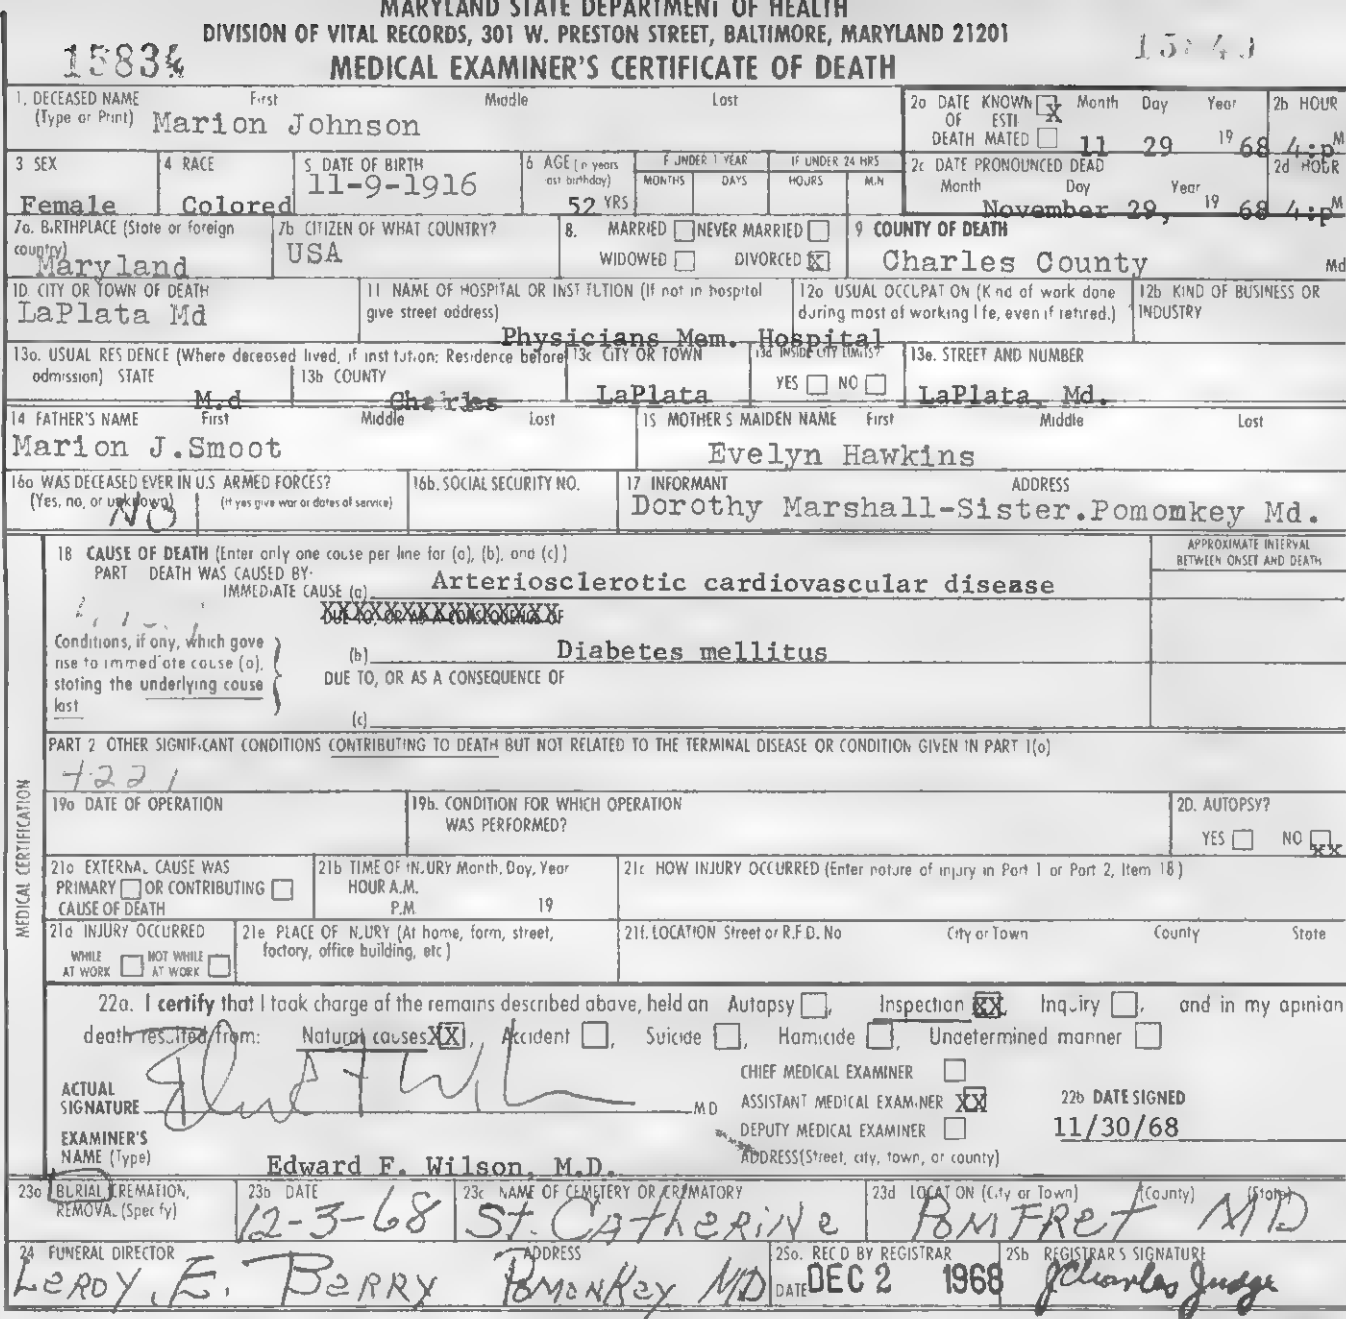 MARYLAND STATE DEPARTMENT OF HEALTH
DIVISION OF VITAL RECORDS, 301 W. PRESTON STREET, BALTIMORE, MARYLAND 21201
15834
MEDICAL EXAMINER'S CERTIFICATE OF DEATH
1. DECEASED NAME (Type or Print) First Middle Last
Marion Johnson
2a DATE OF DEATH KNOWN X ESTIMATED Month Day Year
11 29 1968
2b HOUR
4:pM
3 SEX
Female
4 RACE
Colored
5 DATE OF BIRTH
11-9-1916
6 AGE (in years last birthday)
52 YRS
IF UNDER 1 YEAR
MONTHS DAYS
IF UNDER 24 HRS
HOURS MIN
2c DATE PRONOUNCED DEAD
Month Day Year
November 29, 1968
2d HOUR
4:pM
7a. BIRTHPLACE (State or foreign country)
Maryland
7b CITIZEN OF WHAT COUNTRY?
USA
8. MARRIED NEVER MARRIED
WIDOWED DIVORCED X
9 COUNTY OF DEATH
Charles County Md
10. CITY OR TOWN OF DEATH
LaPlata Md
11 NAME OF HOSPITAL OR INSTITUTION (If not in hospital give street address)
Physicians Mem. Hospital
12a USUAL OCCUPATION (Kind of work done during most of working life, even if retired.)
12b KIND OF BUSINESS OR INDUSTRY
13a. USUAL RESIDENCE (Where deceased lived, if institution: Residence before admission) STATE
M.d
13b COUNTY
Charles
13c CITY OR TOWN
LaPlata
13d INSIDE CITY LIMITS?
YES NO
13e. STREET AND NUMBER
LaPlata, Md.
14 FATHER'S NAME First Middle Last
Marion J.Smoot
15 MOTHER'S MAIDEN NAME First Middle Last
Evelyn Hawkins
16a WAS DECEASED EVER IN U.S. ARMED FORCES?
(Yes, no, or unknown) (If yes give war or dates of service)
NO
16b. SOCIAL SECURITY NO.
17 INFORMANT ADDRESS
Dorothy Marshall-Sister.Pomomkey Md.
MEDICAL CERTIFICATION
18 CAUSE OF DEATH (Enter only one cause per line for (a), (b), and (c))
APPROXIMATE INTERVAL BETWEEN ONSET AND DEATH
PART DEATH WAS CAUSED BY:
IMMEDIATE CAUSE (a) Arteriosclerotic cardiovascular disease
XXXXXXXXXXXXXXXXX
DUE TO, OR AS A CONSEQUENCE OF
Conditions, if any, which gave rise to immediate cause (a), stating the underlying cause last
(b) Diabetes mellitus
DUE TO, OR AS A CONSEQUENCE OF
(c)
PART 2 OTHER SIGNIFICANT CONDITIONS CONTRIBUTING TO DEATH BUT NOT RELATED TO THE TERMINAL DISEASE OR CONDITION GIVEN IN PART 1(a)
4221
19a DATE OF OPERATION
19b. CONDITION FOR WHICH OPERATION WAS PERFORMED?
20. AUTOPSY?
YES NO XX
21a EXTERNAL CAUSE WAS
PRIMARY OR CONTRIBUTING
CAUSE OF DEATH
21b TIME OF INJURY Month, Day, Year
HOUR A.M.
P.M. 19
21c HOW INJURY OCCURRED (Enter nature of injury in Part 1 or Part 2, Item 18)
21d INJURY OCCURRED
WHILE AT WORK NOT WHILE AT WORK
21e PLACE OF INJURY (At home, farm, street, factory, office building, etc)
21f. LOCATION Street or R.F.D. No City or Town County State
22a. I certify that I took charge of the remains described above, held an Autopsy, Inspection XX, Inquiry, and in my opinion
death resulted from: Natural causes XX, Accident, Suicide, Homicide, Undetermined manner
CHIEF MEDICAL EXAMINER
ACTUAL SIGNATURE M D
ASSISTANT MEDICAL EXAMINER XX
DEPUTY MEDICAL EXAMINER
22b DATE SIGNED
11/30/68
EXAMINER'S NAME (Type)
Edward F. Wilson, M.D.
ADDRESS(Street, city, town, or county)
23a BURIAL CREMATION, REMOVAL (Specify)
23b DATE
12-3-68
23c NAME OF CEMETERY OR CREMATORY
St. CAtheRiNe
23d LOCATION (City or Town) (County) (State)
POMFRet MD
24 FUNERAL DIRECTOR ADDRESS
LeROY. E. BeRRY POMONKey MD
25a. REC'D BY REGISTRAR
DATE DEC 2 1968
25b REGISTRAR'S SIGNATURE
J Charles Judge